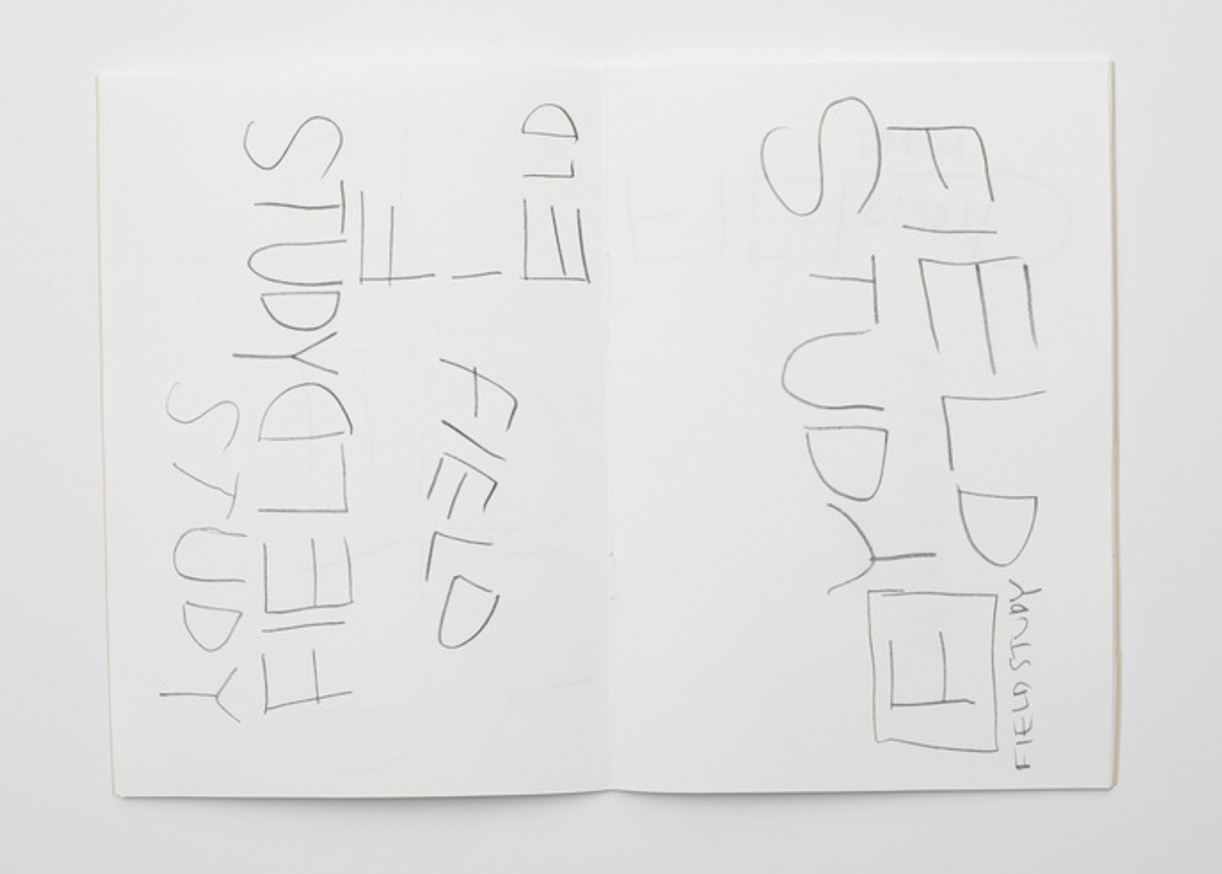 F I E LD
STUDY
FIELD
FIELD
STUDY
FIELD
STUDY
F
FIELD STUDY